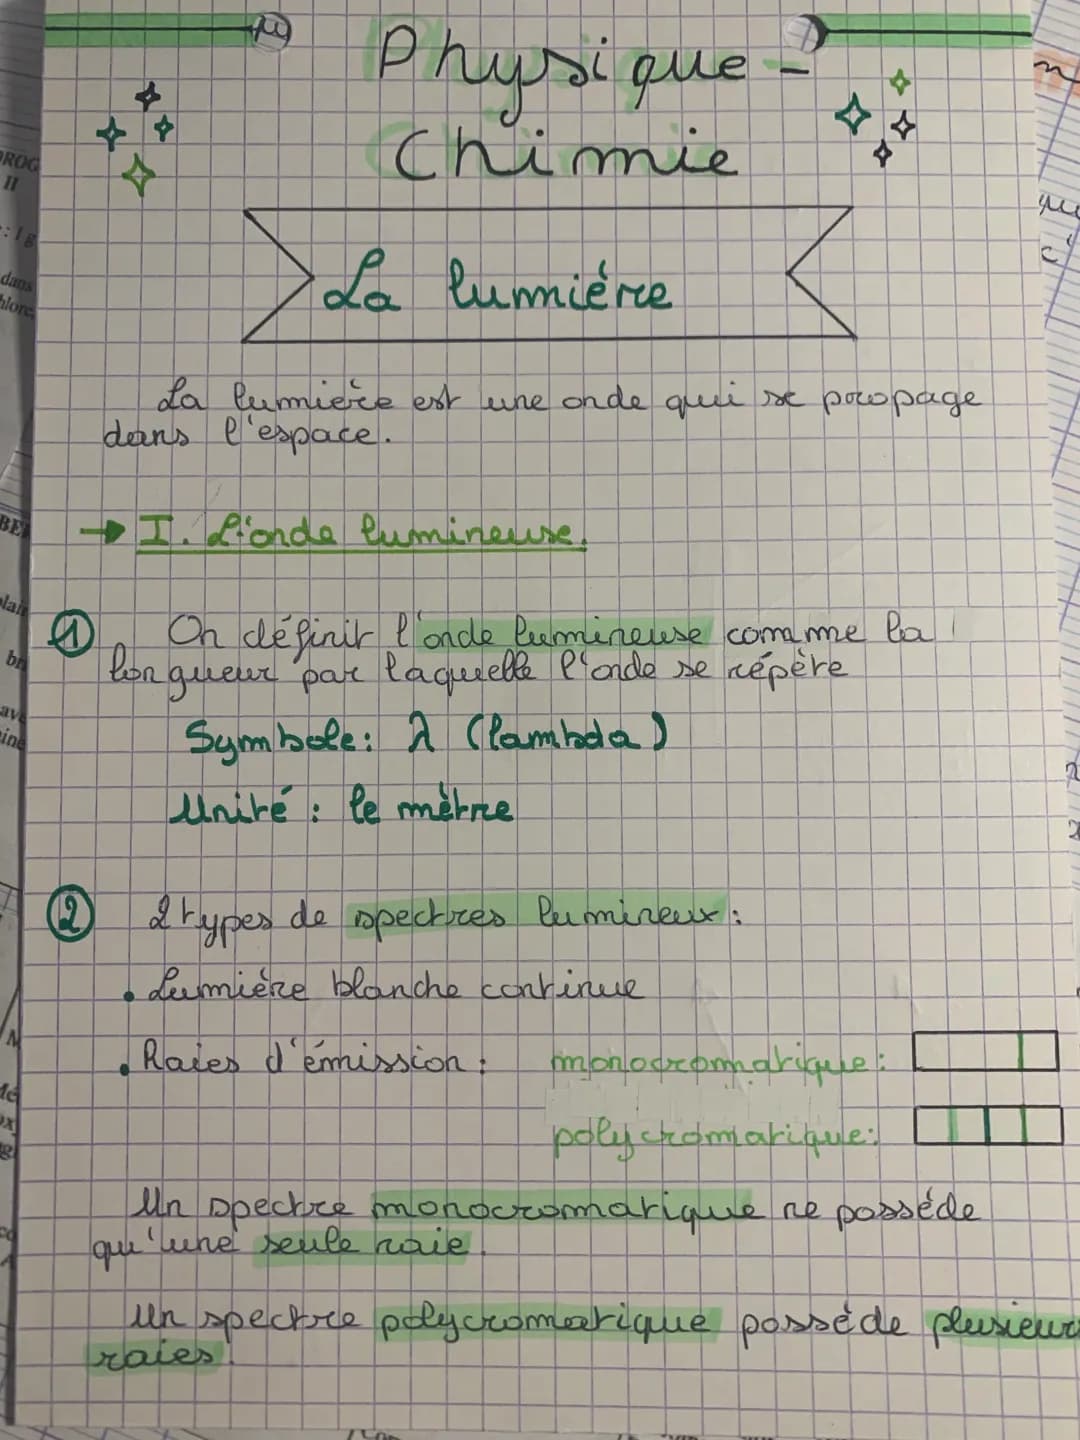 Physique -
Chimie
La lumiére
La lumière est une onde qui se propage
dans l'espace.
→ I. L'onde lumineuse.
1 On définit l'onde lumineuse comme la
longueur par laquelle l'onde se répère
Symbole: λ (lambda)
Unité : le mètre
2 2 types de spectres lumineux :
• Lumière blanche continue
• Raies d'émission : monocromatique :
polycromatique:
Un spectre monocromatique ne posséde
qu'une seule raie.
Un spectre polycromatique posséde plusieurs
raies.
PROG
II
: 1g
dans